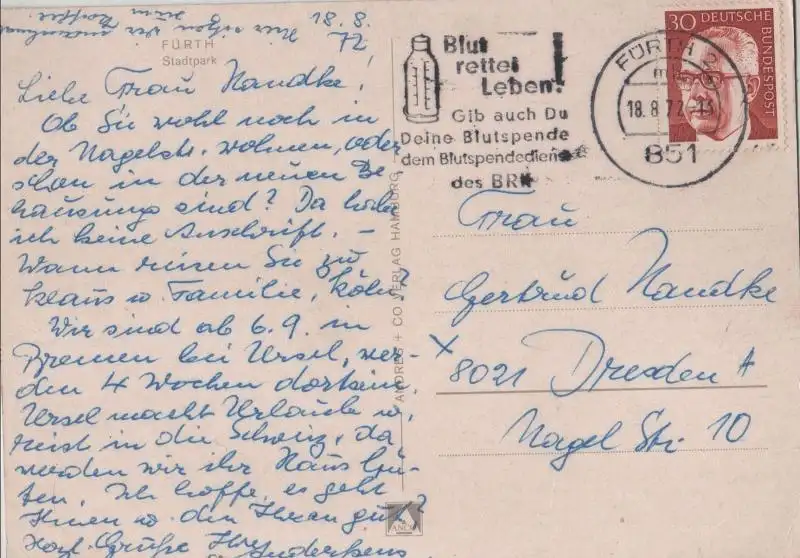 18.8.
72
FÜRTH
Stadtpark
Liebe Frau Nandke!
Ob Sie wohl noch in
der Nagelstr. wohnen, oder
schon in der neuen Be
hausung sind? Da habe
ich keine Anschrift. –
Wann reisen Sie zu
Klaus u. Familie, Köln?
Wir sind ab 6.9. in
Bremen bei Ursel, wer-
den 4 Wochen dort sein.
Ursel macht Urlaub u.
reist in die Schweiz, da
werden wir ihr Haus hü-
ten. Ich hoffe, es geht
Ihnen u. den Ihren gut?
Herzl. Grüße Ihre
ANDRES + CO VERLAG HAMBURG
ANCO
Blut
rettet
Leben!
Gib auch Du
Deine Blutspende
dem Blutspendedienst
des BRK
FÜRTH 2
18.8.72
851
30 DEUTSCHE
BUNDESPOST
Frau
Gertrud Nandke
x 8021 Dresden A
Nagel Str. 10